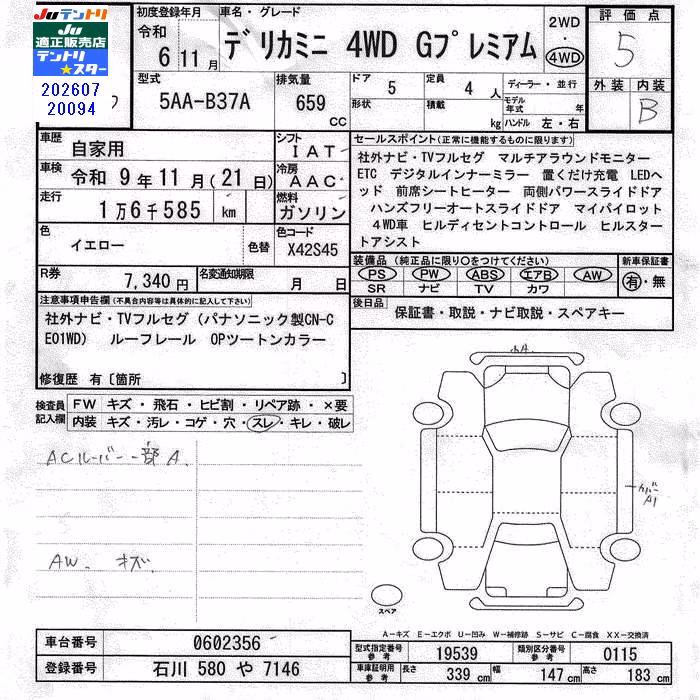 Juテントリ
JU
適正販売店
テントリ★スター
202607
20094
初度登録年月
令和
6 11月
車名・グレード
デリカミニ 4WD Gプレミアム
2WD
・
4WD
評価点
5
型式
5AA-B37A
排気量
659
cc
ドア
5
定員
4 人
形状
積載
kg
ディーラー・並行
モデル年式 年
ハンドル 左・右
外装 内装
B
車歴
自家用
シフト
IAT
車検
令和 9年 11月(21日)
冷房
AAC
走行
1万6千585 km
燃料
ガソリン
色
イエロー
色替
色コード
X42S45
R券
7,340円
名変通知期限
月 日
セールスポイント(正常に機能するものに限ります)
社外ナビ・TVフルセグ マルチアラウンドモニター
ETC デジタルインナーミラー 置くだけ充電 LEDヘ
ッド 前席シートヒーター 両側パワースライドドア
ハンズフリーオートスライドドア マイパイロット
4WD車 ヒルディセントコントロール ヒルスター
トアシスト
装備品(純正品に限り○をつけてください)
PS PW ABS エアB AW
SR ナビ TV カワ
新車保証書
有・無
後日品
保証書・取説・ナビ取説・スペアキー
注意事項申告欄(不具合内容等は具体的に記入して下さい)
社外ナビ・TVフルセグ(パナソニック製CN-C
E01WD) ルーフレール OPツートンカラー
修復歴 有〔箇所 〕
検査員
記入欄
FW キズ・飛石・ヒビ割・リペア跡・×要
内装 キズ・汚レ・コゲ・穴・スレ・キレ・破レ
ACルーバー一部A
AW. キズ.
カバー
A1
スペア
A-キズ E-エクボ U-凹み W-補修跡 S-サビ C-腐食 XX-交換済
車台番号
0602356
登録番号
石川 580 や 7146
型式指定番号
参考
19539
類別区分番号
参考
0115
車庫証明用
参考
長さ
339 cm
幅
147 cm
高さ
183 cm